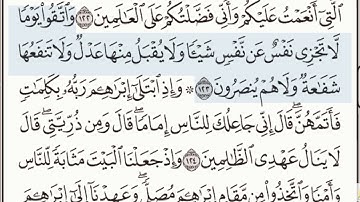 ٱلَّتِىٓ أَنْعَمْتُ عَلَيْكُمْ وَأَنِّى فَضَّلْتُكُمْ عَلَى ٱلْعَـٰلَمِينَ ١٢٢ وَٱتَّقُوا۟ يَوْمًا
لَّا تَجْزِى نَفْسٌ عَن نَّفْسٍ شَيْـًٔا وَلَا يُقْبَلُ مِنْهَا عَدْلٌ وَلَا تَنفَعُهَا
شَفَـٰعَةٌ وَلَا هُمْ يُنصَرُونَ ١٢٣ ۞ وَإِذِ ٱبْتَلَىٰٓ إِبْرَٰهِـۧمَ رَبُّهُۥ بِكَلِمَـٰتٍ
فَأَتَمَّهُنَّ ۖ قَالَ إِنِّى جَاعِلُكَ لِلنَّاسِ إِمَامًا ۖ قَالَ وَمِن ذُرِّيَّتِى ۖ قَالَ
لَا يَنَالُ عَهْدِى ٱلظَّـٰلِمِينَ ١٢٤ وَإِذْ جَعَلْنَا ٱلْبَيْتَ مَثَابَةً لِّلنَّاسِ
وَأَمْنًا وَٱتَّخِذُوا۟ مِن مَّقَامِ إِبْرَٰهِـۧمَ مُصَلًّى ۖ وَعَهِدْنَآ إِلَىٰٓ إِبْرَٰهِـۧمَ